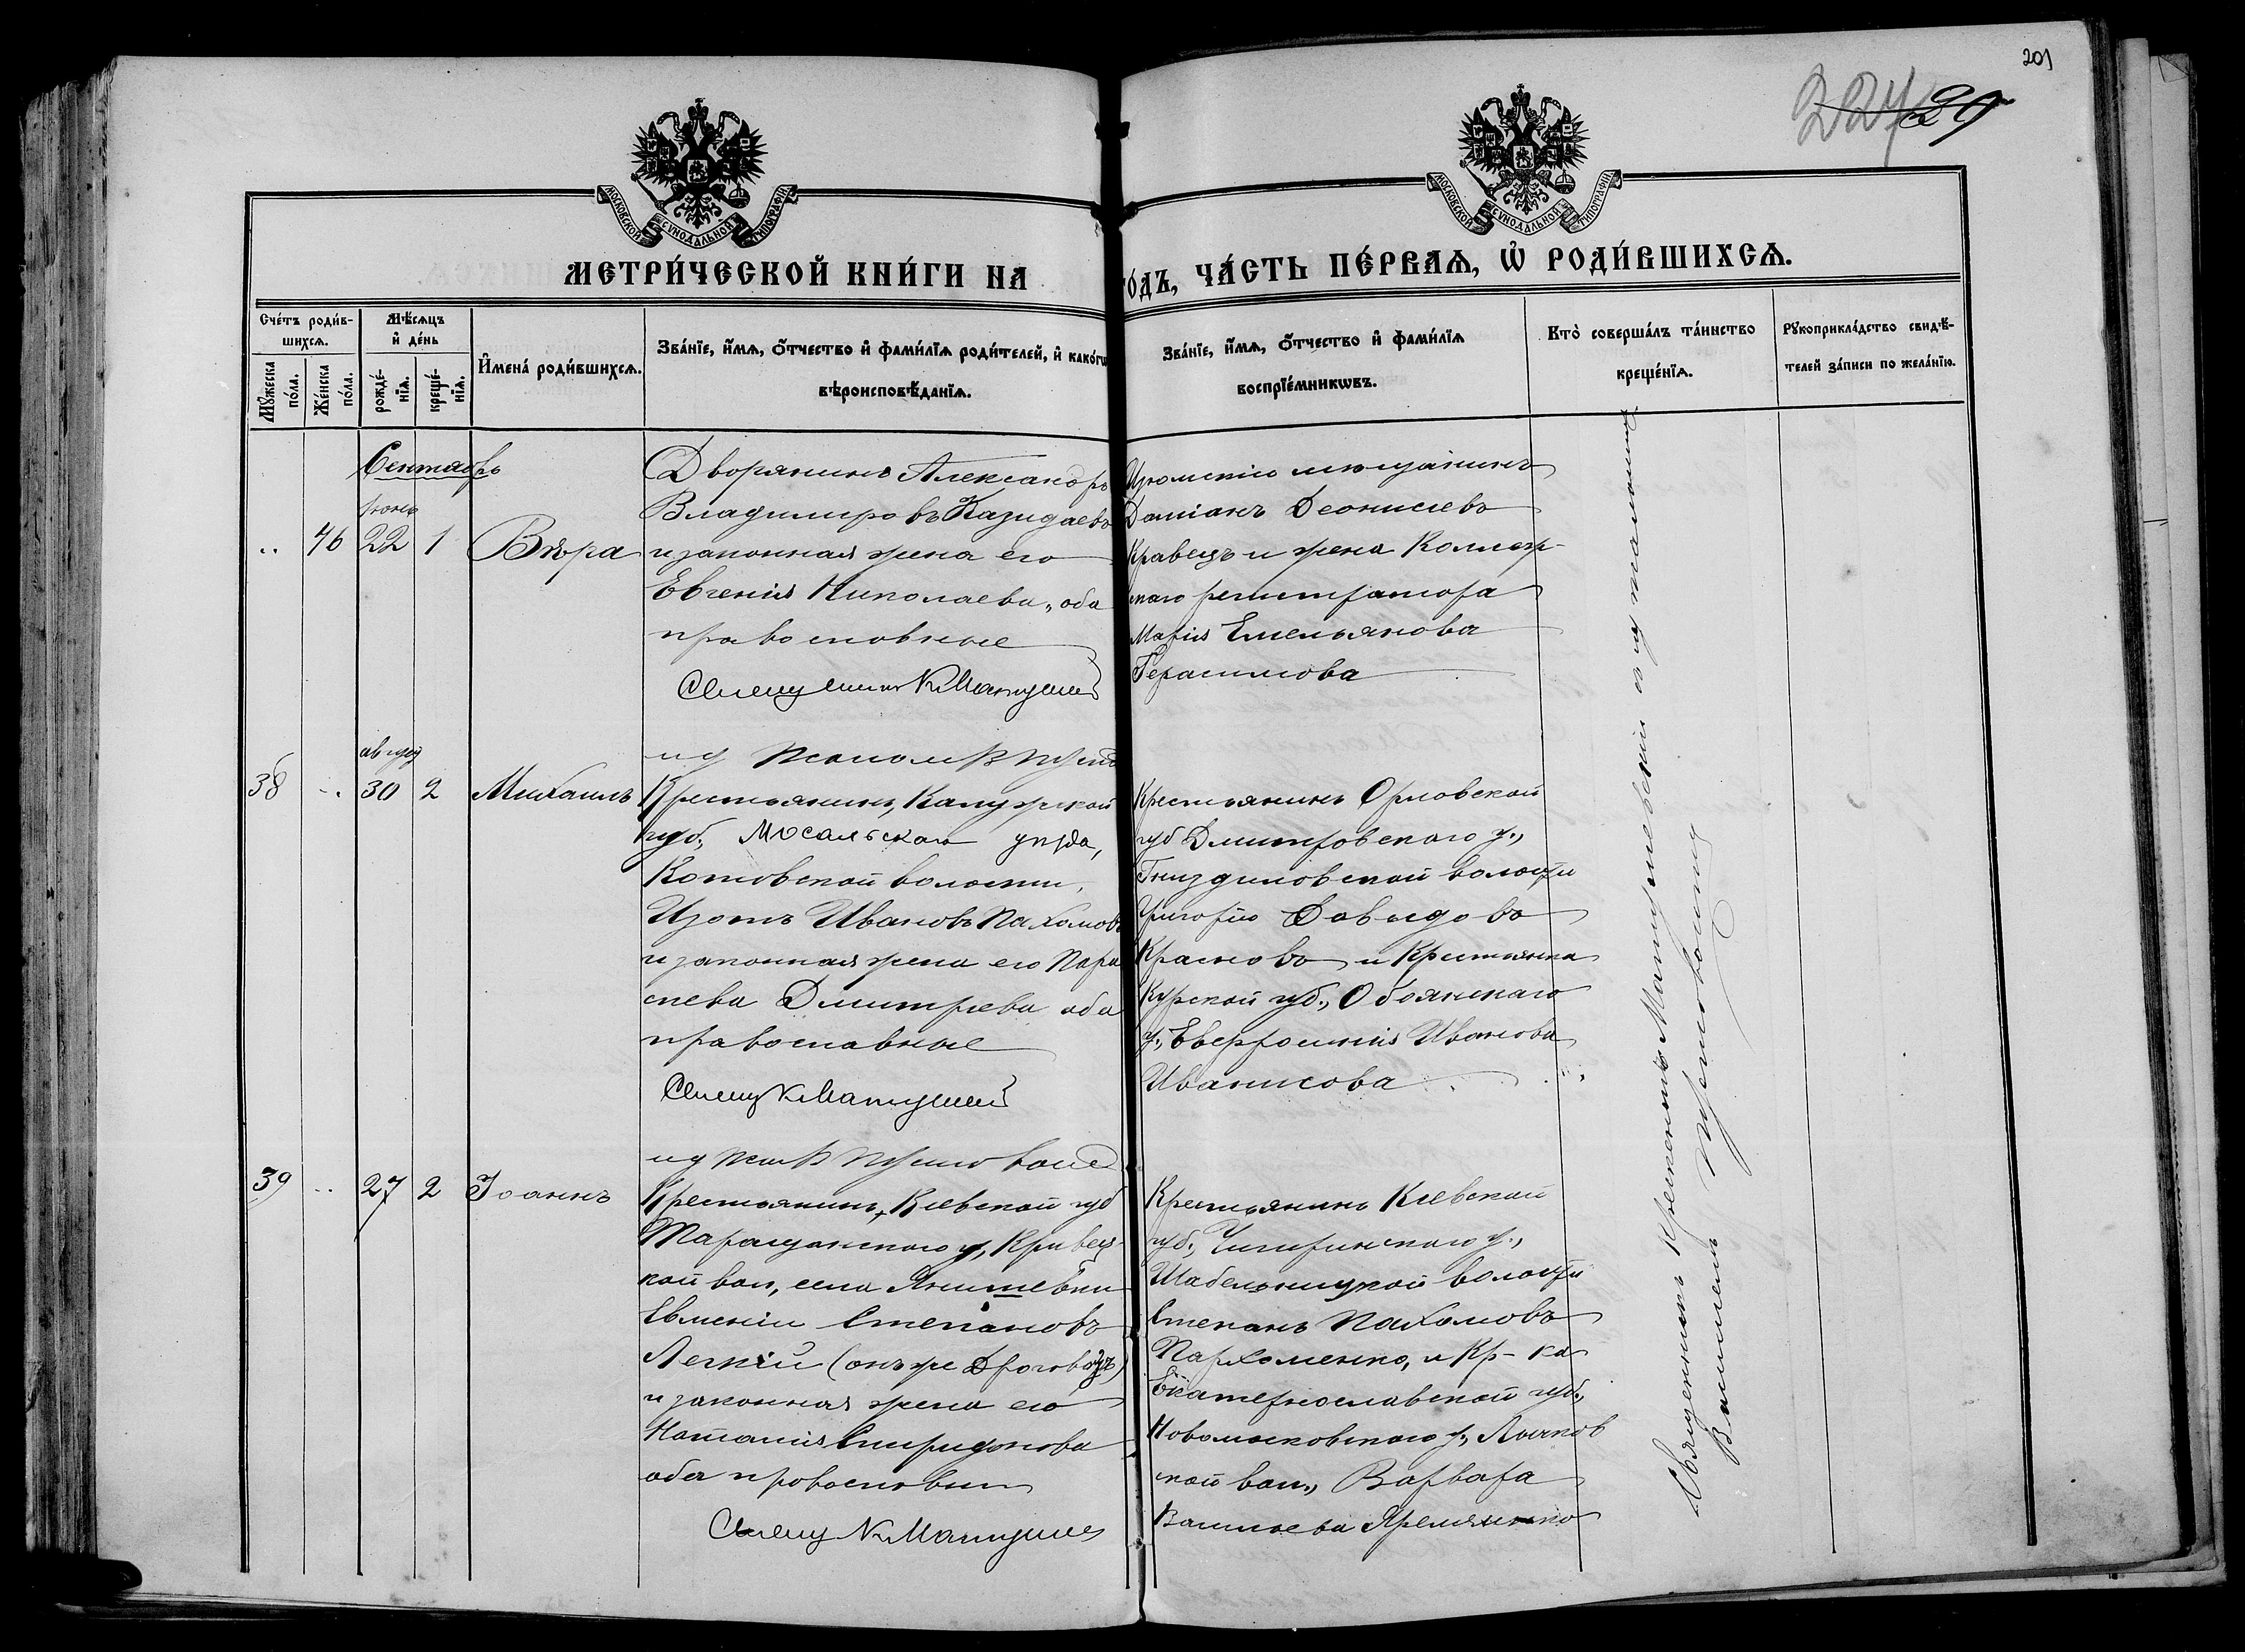 201
227 29
МОСКОВСКОЙ СУНОДАЛЬНОЙ ТИПОГРАФІИ
МОСКОВСКОЙ СУНОДАЛЬНОЙ ТИПОГРАФІИ
МЕТРИ́ЧЕСКОЙ КНИ́ГИ НА
ГО́ДЪ, ЧА́СТЬ ПЕ́РВАѦ, Ѽ РОДИ́ВШИХСѦ.
Сче́тъ роди́в-
шихсѧ.
Мꙋ́жеска
по́ла.
Же́нска
по́ла.
Мѣ́сѧцъ
и҆ де́нь
рожде́-
нїѧ.
креще́-
нїѧ.
И҆мена̀ роди́вшихсѧ.
Зва́нїе, и҆́мѧ, ѻ҆́тчество и҆ фамı́лїѧ роди́телей, и҆ како́гѡ
вѣроисповѣ́данїѧ.
Зва́нїе, и҆́мѧ, ѻ҆́тчество и҆ фамı́лїѧ
воспрїе́мникѡвъ.
Кто̀ соверша́лъ та́инство
креще́нїѧ.
Рꙋкоприкла́дство свидѣ́-
телей за́писи по жела́нїю.
Сентябрь
іюнь
.. 46 22 1 Вѣра
Дворянинъ Александръ
Владимировъ Казидаевъ
и законная жена его
Евгенія Николаева, оба
православные
Изюмскій мѣщанинъ
Даміанъ Деонисіевъ
Кравецъ и жена Коллеж-
скаго регистратора
Марія Емельянова
Герасимова
август
38 .. 30 2 Михаилъ
Крестьянинъ, Калужской
губ., Мосальскаго уѣзда,
Котовской волости,
Изотъ Ивановъ Пахомовъ
и законная жена его Пара
скева Дмитріева оба
православные
Крестьянинъ Орловской
губ Дмитровскаго у.,
Гнездиловской волости
Григорій Давыдовъ
Красновъ и Крестьянка
Курской губ., Обоянскаго
у., Евфросинія Иванова
Иванисова
39 .. 27 2 Іоаннъ
Крестьянинъ, Кіевской губ
Таращанскаго у, Кривец
кой вол, села Янишевки
Евменій Степановъ
Легкій (онъ же
и законная жена его
Наталія Спиридонова
оба православны
Крестьянинъ Кіевской
губ., Чигиринскаго у.,
Шабельницкой волости
Степанъ Пахомовъ
Пархоменко, и Кр-ка
Екатеринославской губ.,
Новомосковскаго у., Лычков
ской вол., Варвара
Васильева Яременко
Священникъ
Василій